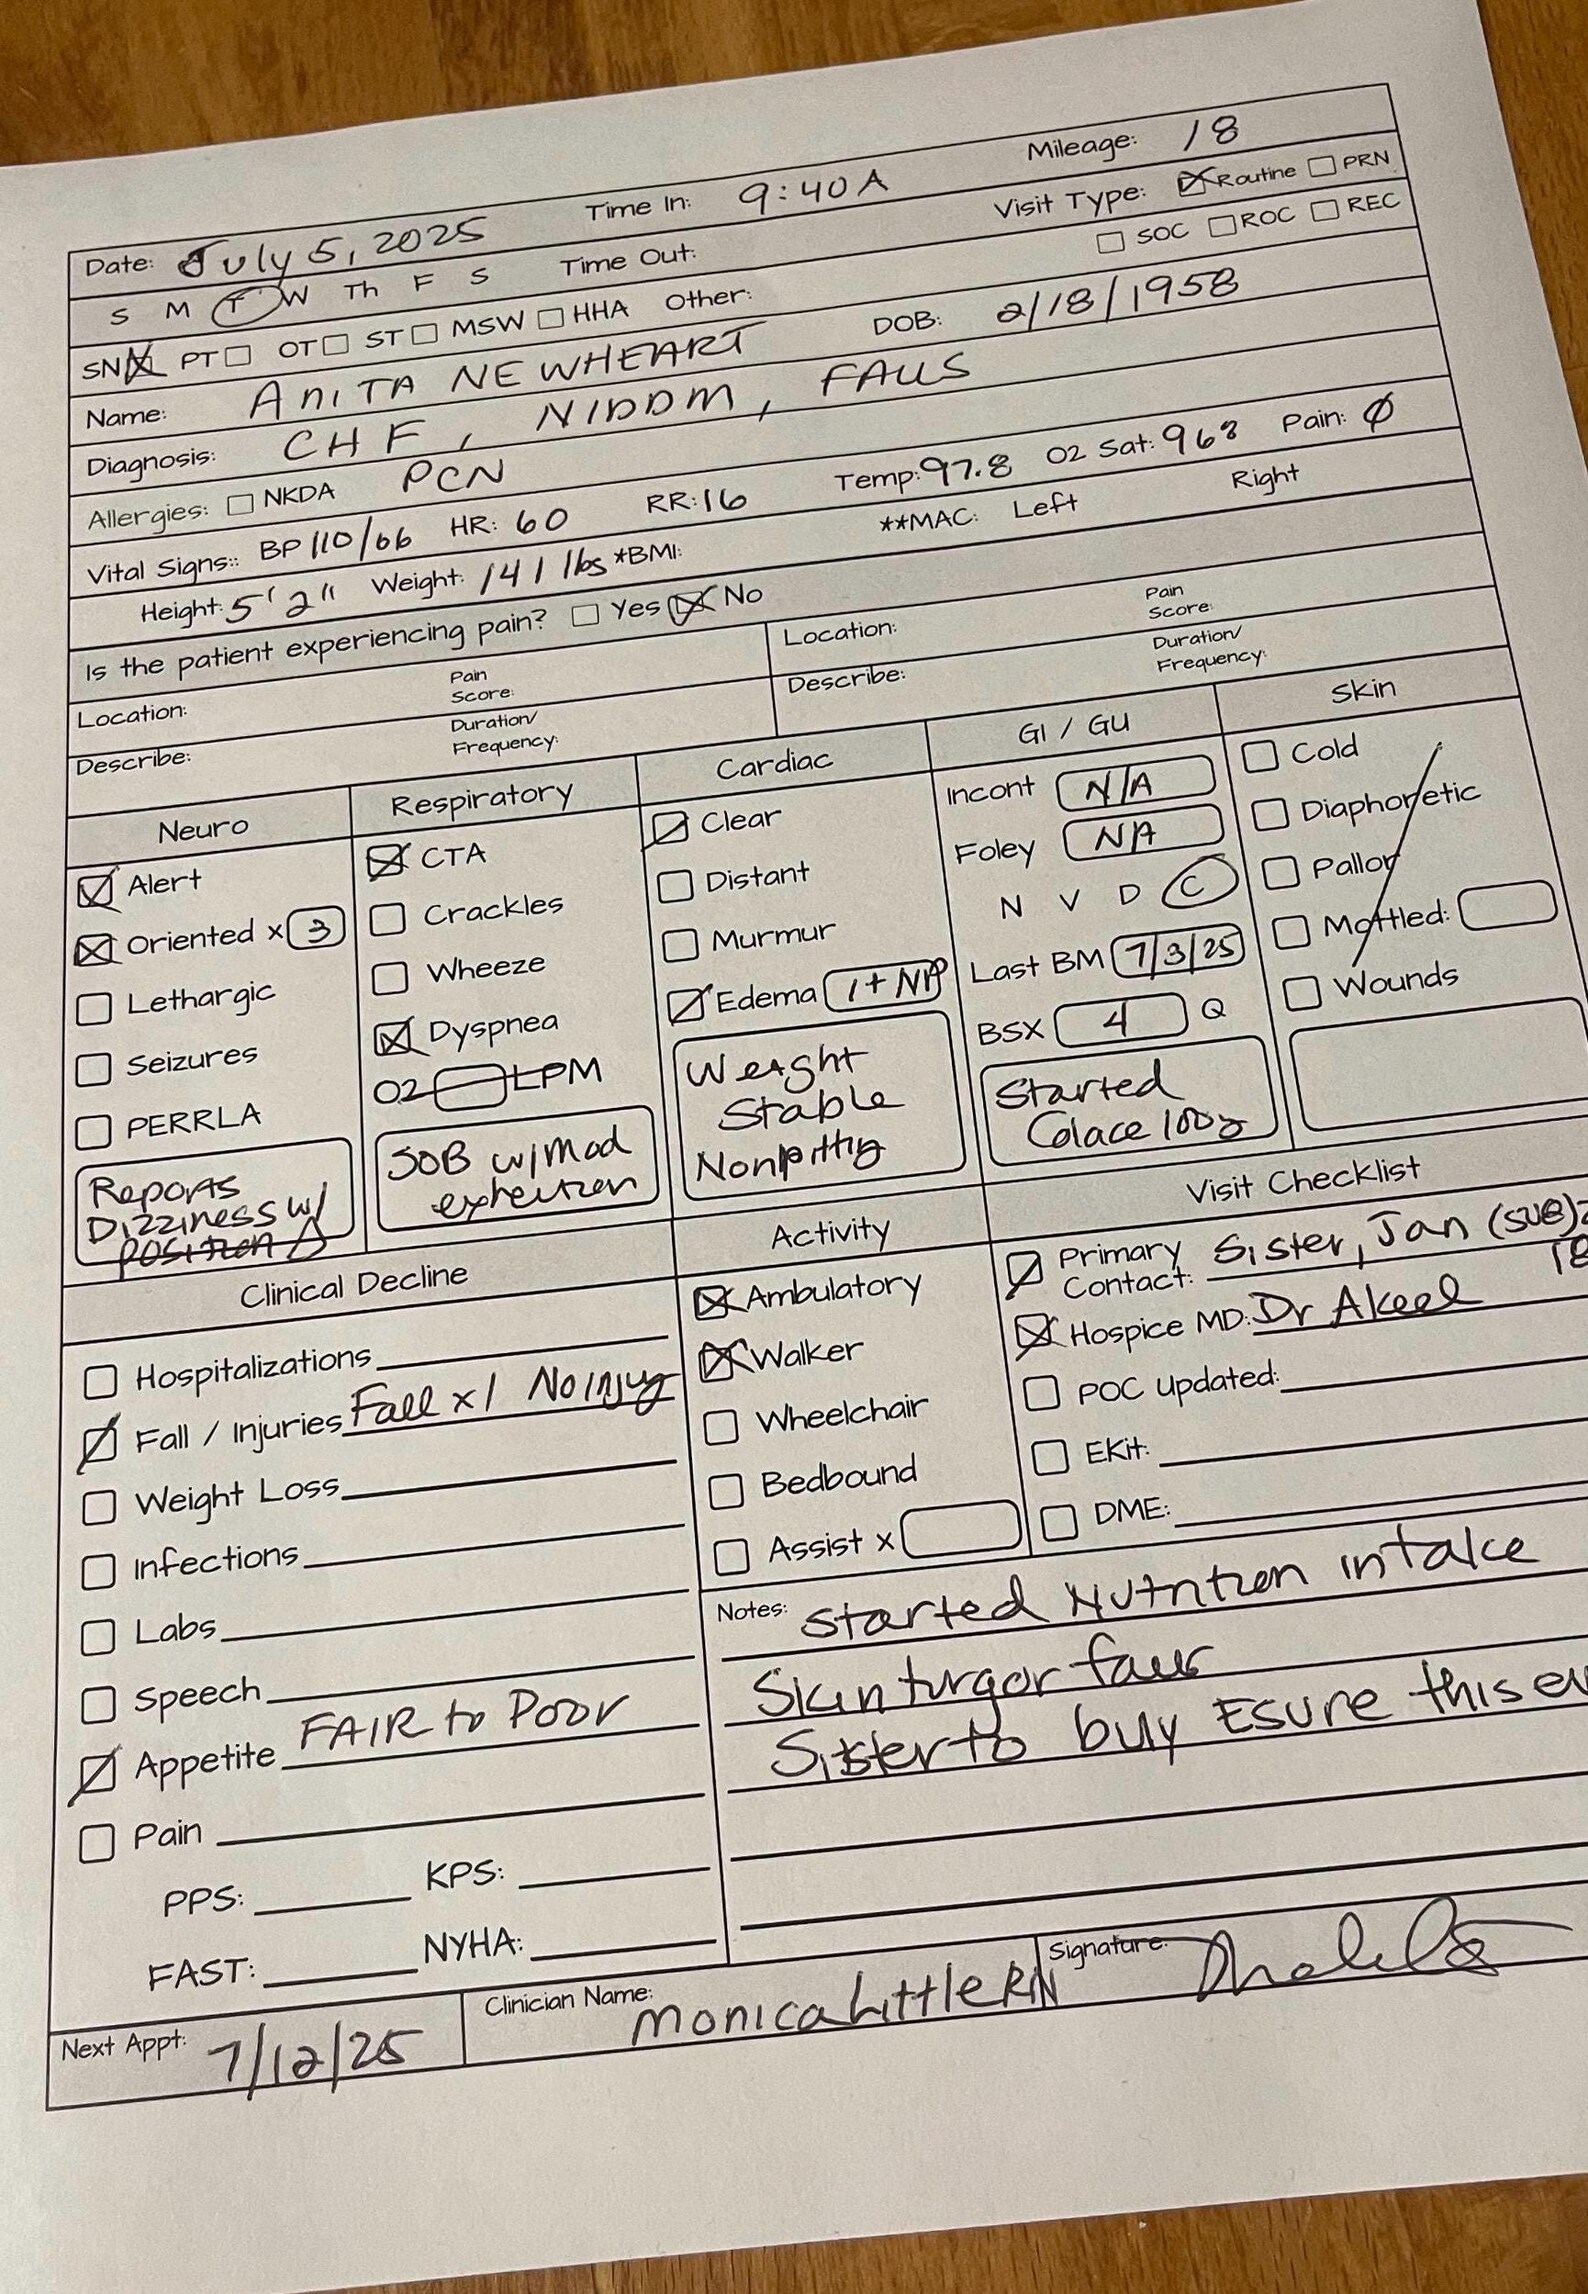 Date: July 5, 2025 Time In: 9:40 A Mileage: 18
S M T W Th F S Time Out: Visit Type: Routine PRN
SOC ROC REC
SN PT OT ST MSW HHA Other:
Name: ANITA NEWHEART DOB: 2/18/1958
Diagnosis: CHF, NIDDM, FALLS
Allergies: NKDA PCN
Vital Signs:: BP 110/66 HR: 60 RR: 16 Temp: 97.8 O2 Sat: 96% Pain: Ø
Height: 5'2" Weight: 141 lbs *BMI: **MAC: Left Right
Is the patient experiencing pain? Yes No
Location: Pain Score: Location: Pain Score:
Describe: Duration/ Frequency: Describe: Duration/ Frequency:
Neuro
Alert
Oriented x 3
Lethargic
Seizures
PERRLA
Reports
Dizziness w/
position Δ
Respiratory
CTA
Crackles
Wheeze
Dyspnea
O2 LPM
SOB w/ Mod
exhertion
Cardiac
Clear
Distant
Murmur
Edema 1+ NP
Weight
Stable
Nonpitting
GI / GU
Incont N/A
Foley N/A
N V D C
Last BM 7/3/25
BSX 4 Q
Started
Colace 100g
Skin
Cold
Diaphoretic
Pallor
Mottled:
Wounds
Clinical Decline
Hospitalizations
Fall / Injuries Fall x1 No injury
Weight Loss
Infections
Labs
Speech
Appetite FAIR to Poor
Pain
PPS: KPS:
FAST: NYHA:
Activity
Ambulatory
Walker
Wheelchair
Bedbound
Assist x
Visit Checklist
Primary Contact: Sister, Jan (SUB)
Hospice MD: Dr Akeel
POC Updated:
EKit:
DME:
Notes: Started Nutrition intake
Skin turgor
Sister to buy Esure this
Next Appt: 7/12/25
Clinician Name: Monica Little RN
Signature: